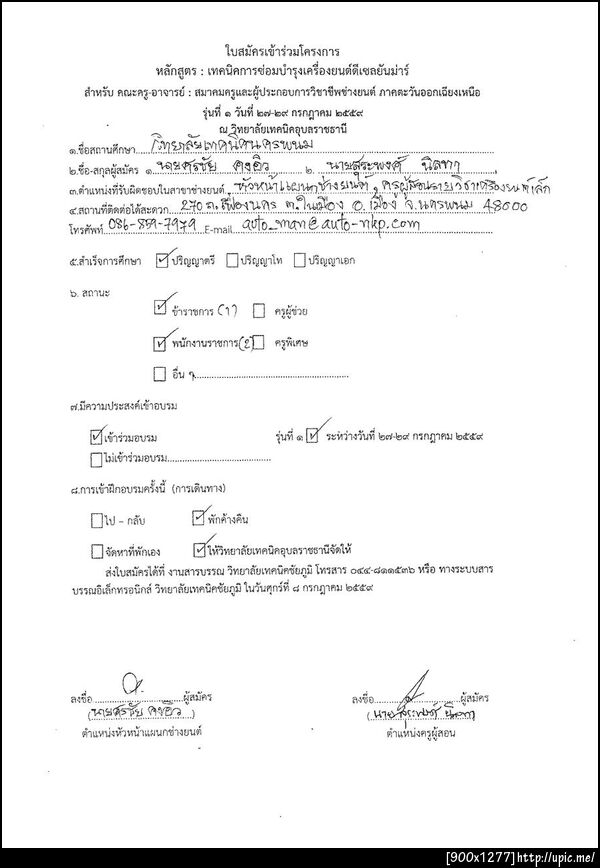 ใบสมัครเข้าร่วมโครงการ
หลักสูตร : เทคนิคการซ่อมบำรุงเครื่องยนต์ดีเซลยันม่าร์
สำหรับ คณะครู-อาจารย์ : สมาคมครูและผู้ประกอบการวิชาชีพช่างยนต์ ภาคตะวันออกเฉียงเหนือ
รุ่นที่ ๑ วันที่ ๒๗-๒๙ กรกฎาคม ๒๕๕๙
ณ วิทยาลัยเทคนิคอุบลราชธานี
๑.ชื่อสถานศึกษา วิทยาลัยเทคนิคนครพนม
๒.ชื่อ-สกุลผู้สมัคร ๑. นายศรชัย คงฮิว ๒. นายสุระพงศ์ นิลทา
๓.ตำแหน่งที่รับผิดชอบในสาขาช่างยนต์ หัวหน้าแผนกช่างยนต์, ครูผู้สอนรายวิชาเครื่องยนต์เล็ก
๔.สถานที่ติดต่อได้สะดวก 270 ถ.เฟื่องนคร ต.ในเมือง อ.เมือง จ.นครพนม 48000
โทรศัพท์ 086-859-7979 E-mail auto_man@auto-nkp.com
๕.สำเร็จการศึกษา ปริญญาตรี ปริญญาโท ปริญญาเอก
๖. สถานะ
ข้าราชการ (1) ครูผู้ช่วย
พนักงานราชการ (2) ครูพิเศษ
อื่น ๆ
๗.มีความประสงค์เข้าอบรม
เข้าร่วมอบรม รุ่นที่ ๑ ระหว่างวันที่ ๒๗-๒๙ กรกฎาคม ๒๕๕๙
ไม่เข้าร่วมอบรม
๘.การเข้าฝึกอบรมครั้งนี้ (การเดินทาง)
ไป – กลับ พักค้างคืน
จัดหาที่พักเอง ให้วิทยาลัยเทคนิคอุบลราชธานีจัดให้
ส่งใบสมัครได้ที่ งานสารบรรณ วิทยาลัยเทคนิคชัยภูมิ โทรสาร ๐๔๔-๘๑๑๕๓๖ หรือ ทางระบบสาร
บรรณอิเล็กทรอนิกส์ วิทยาลัยเทคนิคชัยภูมิ ในวันศุกร์ที่ ๘ กรกฎาคม ๒๕๕๙
ลงชื่อ ผู้สมัคร ลงชื่อ ผู้สมัคร
(นายศรชัย คงฮิว) (นายสุระพงศ์ นิลทา)
ตำแหน่งหัวหน้าแผนกช่างยนต์ ตำแหน่งครูผู้สอน
[900x1277]http://upic.me/